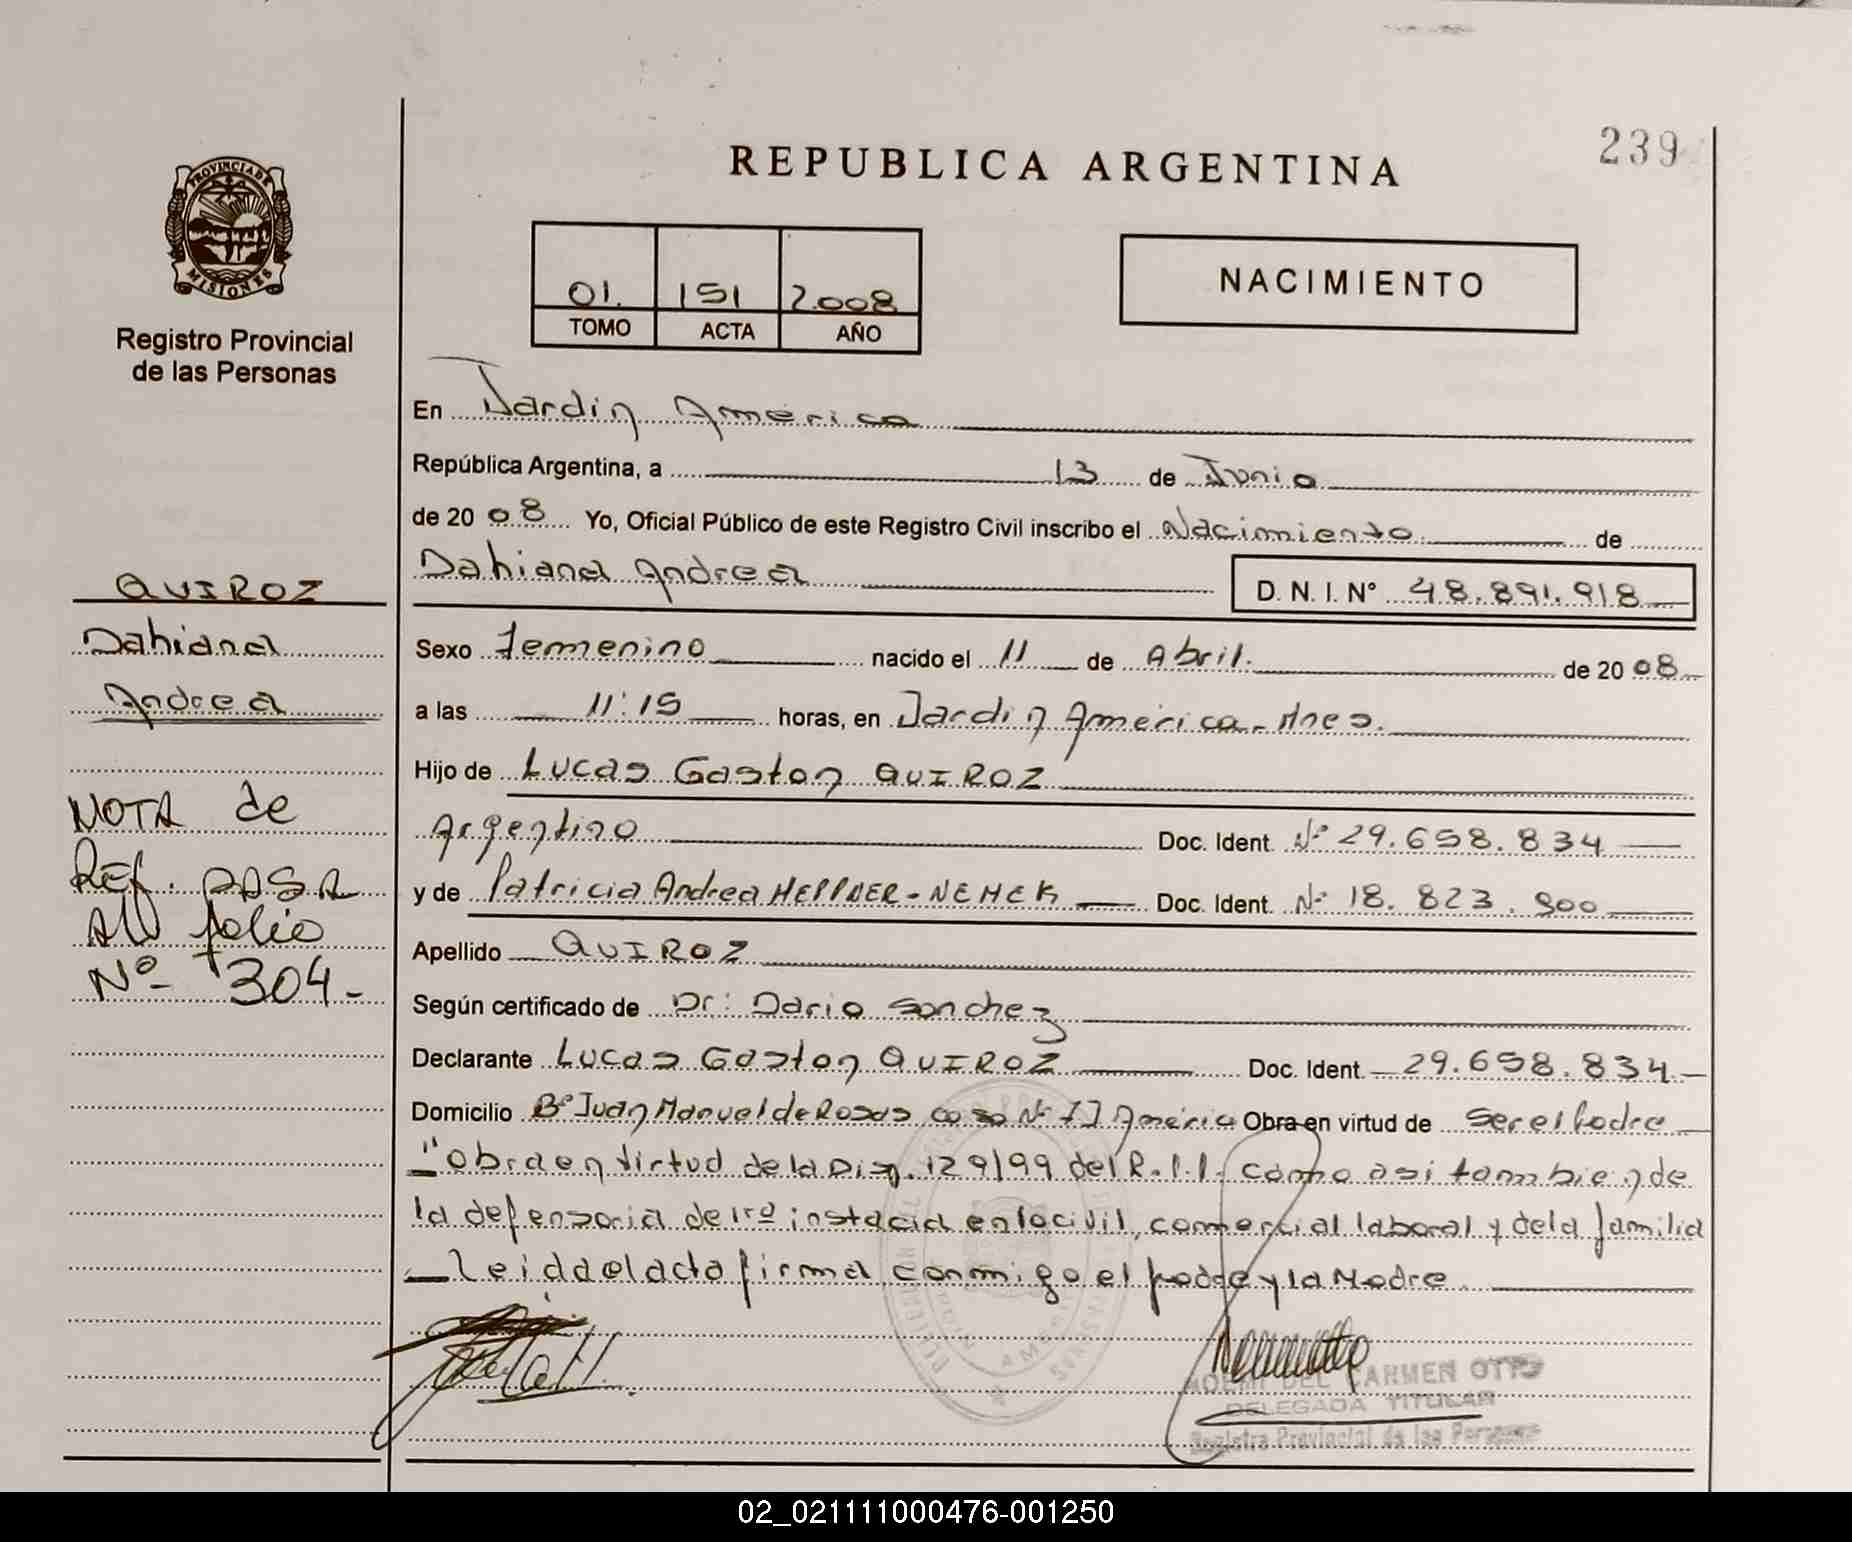 239
REPUBLICA ARGENTINA
PROVINCIA DE
MISIONES
Registro Provincial
de las Personas
01. 151 2.008
TOMO ACTA AÑO
NACIMIENTO
En Jardin América
República Argentina, a 13 de Junio
de 20 08 Yo, Oficial Público de este Registro Civil inscribo el Nacimiento de
Dahiana Andrea D. N. I. N° 48.891.918
QUIROZ
Dahiana
Andrea
NOTA de
REf. PASA
Al folio
Nº- 304-
Sexo Femenino nacido el 11 de Abril. de 20 08
a las 11:15 horas, en Jardin América - Mnes.
Hijo de Lucas Gaston QUIROZ
Argentino Doc. Ident. Nº 29.658.834
y de Patricia Andrea HEPPNER - NEMEK Doc. Ident. Nº 18. 823. 900
Apellido QUIROZ
Según certificado de Dr: Dario Sanchez
Declarante Lucas Gaston QUIROZ Doc. Ident. 29.658.834
Domicilio Bº Juan Manuel de Rosas casa Nº América Obra en virtud de ser el Padre
"Obra en virtud de la Disp. 129/99 del R.P.P. como asi tambien de
la defensoria de 1ra instacia en lo civil, comercial laboral y de la familia
Leida el acta firma conmigo el padre y la Madre
NOEMI DEL CARMEN OTTO
DELEGADA TITULAR
Registro Provincial de las Personas
02_021111000476-001250